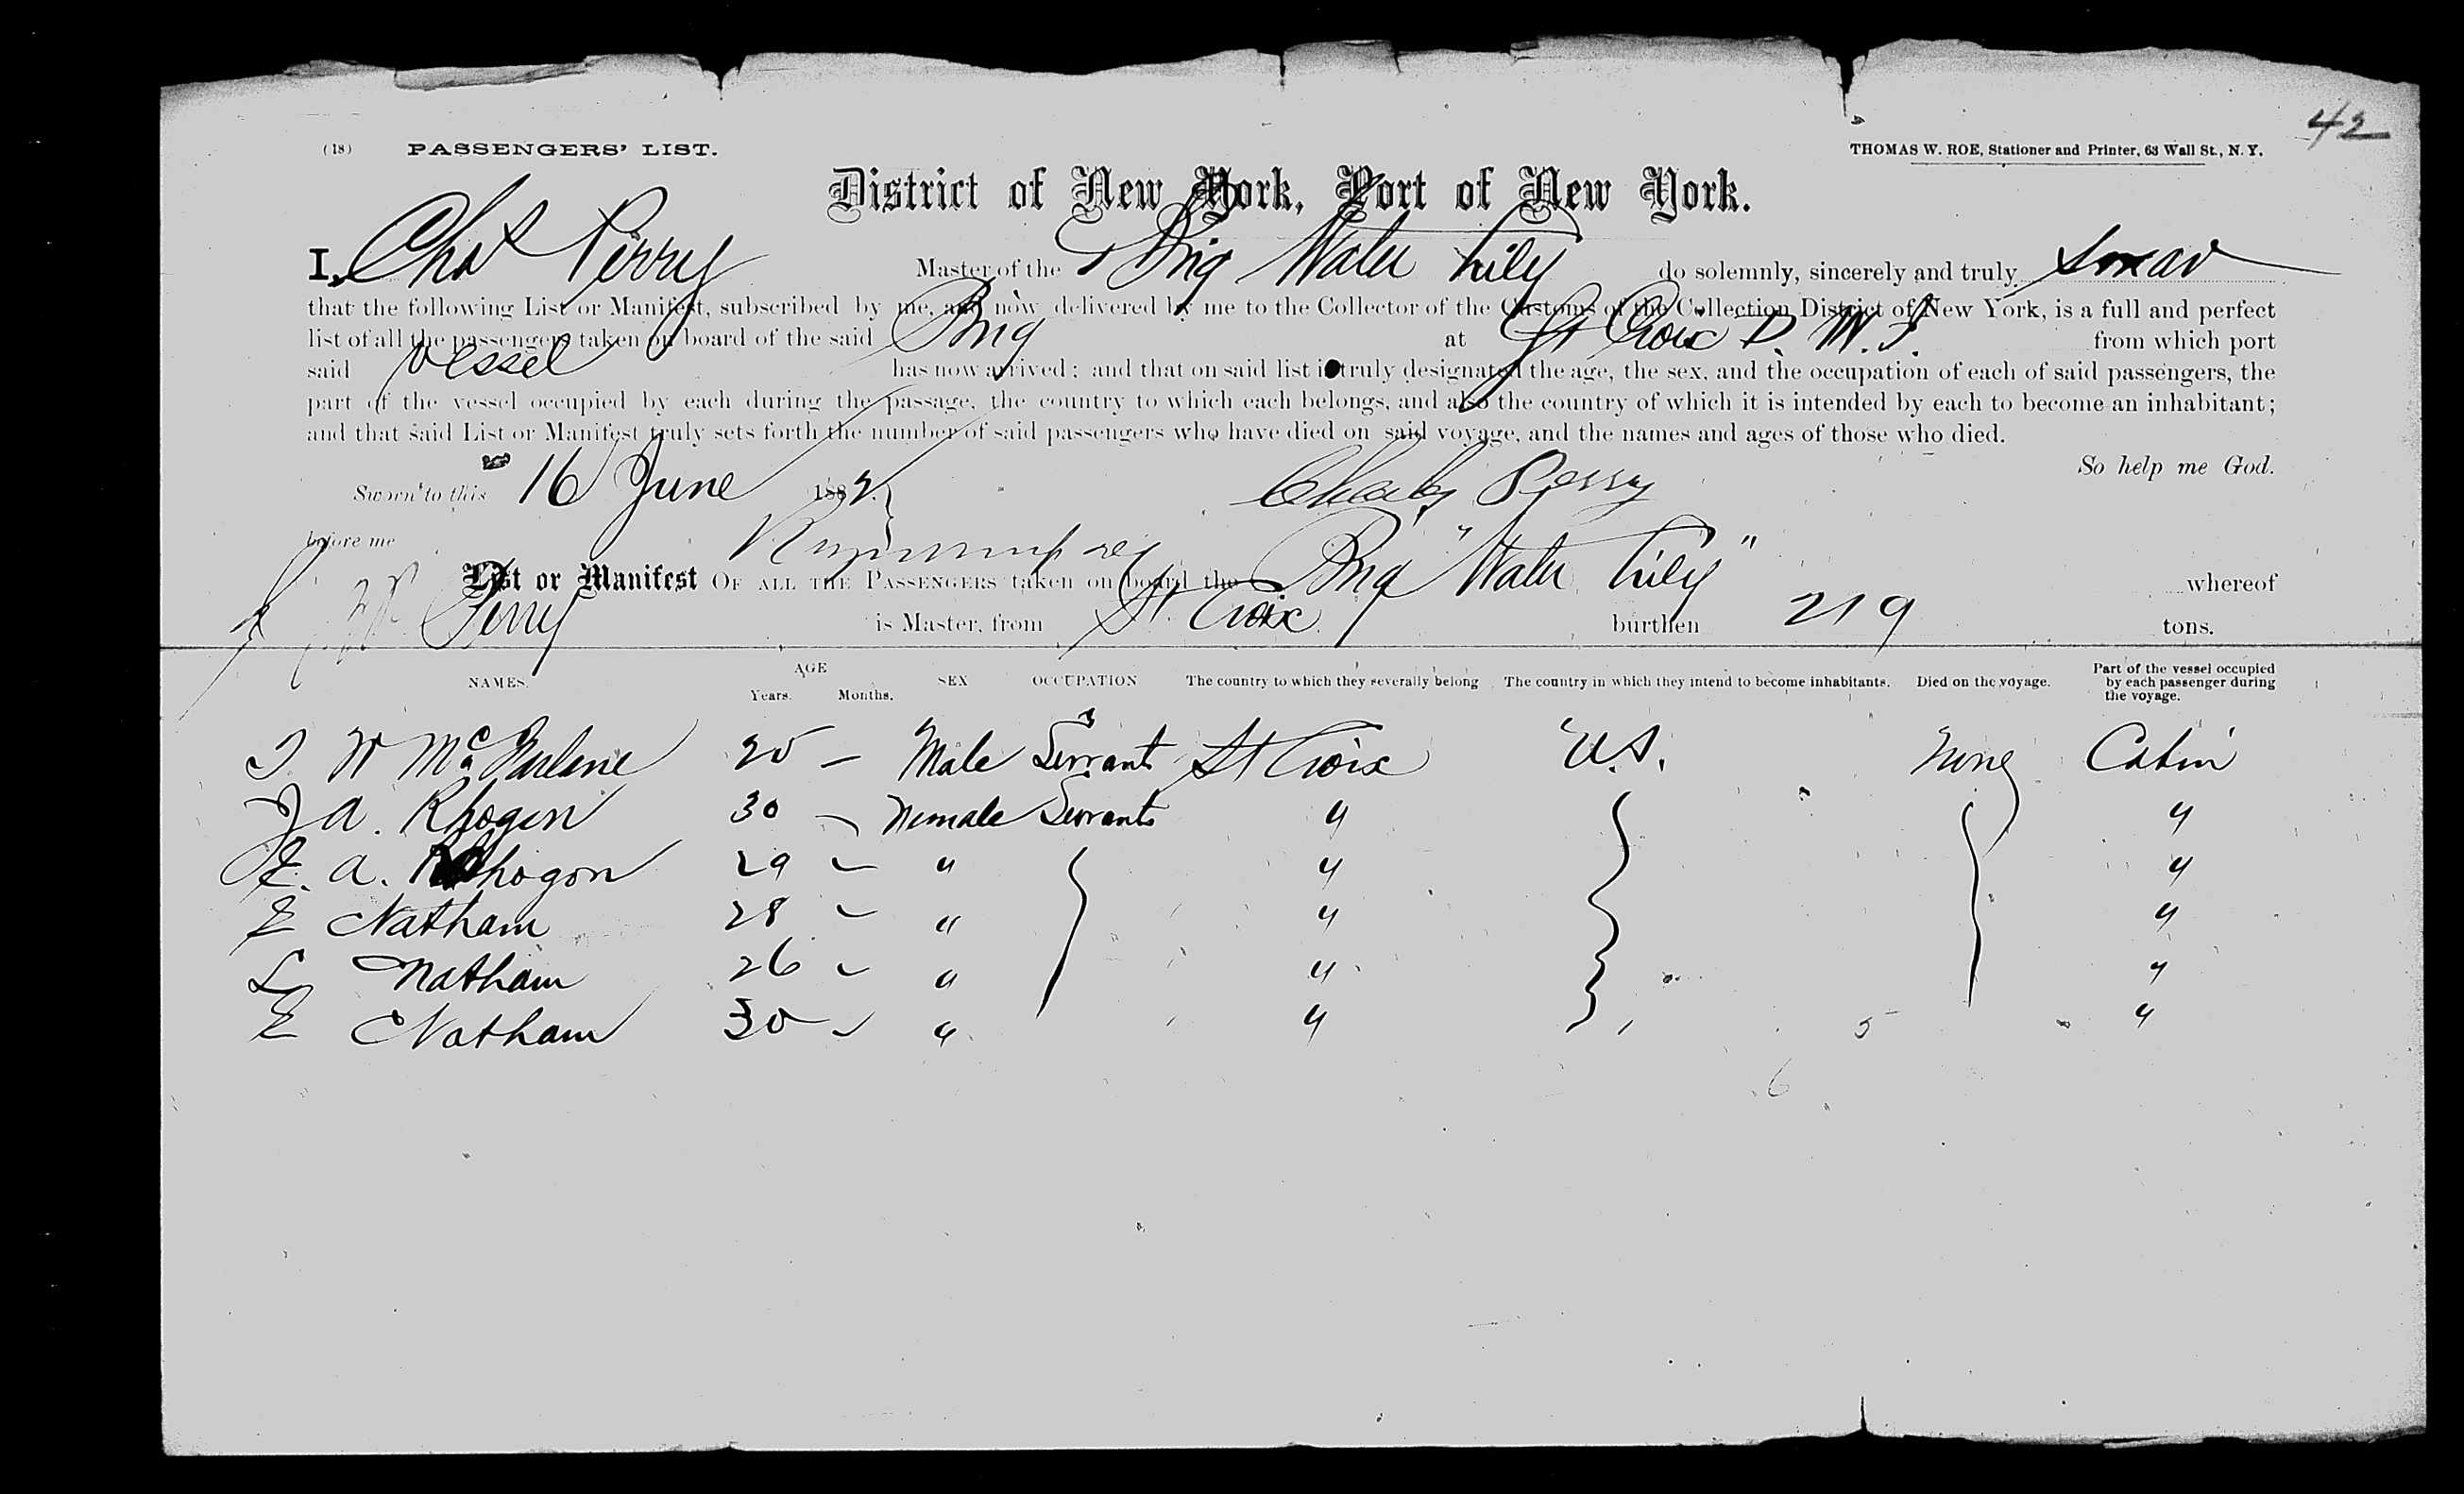 42
(18) PASSENGERS' LIST. THOMAS W. ROE, Stationer and Printer, 63 Wall St., N. Y.
District of New York, Port of New York.
I, Chas Perry Master of the Brig Water Lily do solemnly, sincerely and truly swear
that the following List or Manifest, subscribed by me, and now delivered by me to the Collector of the Customs of the Collection District of New York, is a full and perfect
list of all the passengers taken on board of the said Brig at St Croix D. W. I. from which port
said vessel has now arrived; and that on said list is truly designated the age, the sex, and the occupation of each of said passengers, the
part of the vessel occupied by each during the passage, the country to which each belongs, and also the country of which it is intended by each to become an inhabitant;
and that said List or Manifest truly sets forth the number of said passengers who have died on said voyage, and the names and ages of those who died.
So help me God.
Sworn to this 16 June 1882. Charles Perry
before me
List or Manifest OF ALL THE PASSENGERS taken on board the Brig "Water Lily" whereof
Perry is Master, from St. Croix burthen 219 tons.
NAMES. AGE Years. Months. SEX OCCUPATION The country to which they severally belong The country in which they intend to become inhabitants. Died on the voyage. Part of the vessel occupied by each passenger during the voyage.
W McFarlane 25 — Male Servant St Croix U.S. None Cabin
J A. Rhogen 30 — Female Servants " "
E. A. Rhogon 29 — " " "
E Natham 28 — " " "
L Natham 26 — " " "
E Natham 30 — " " 5 "
6